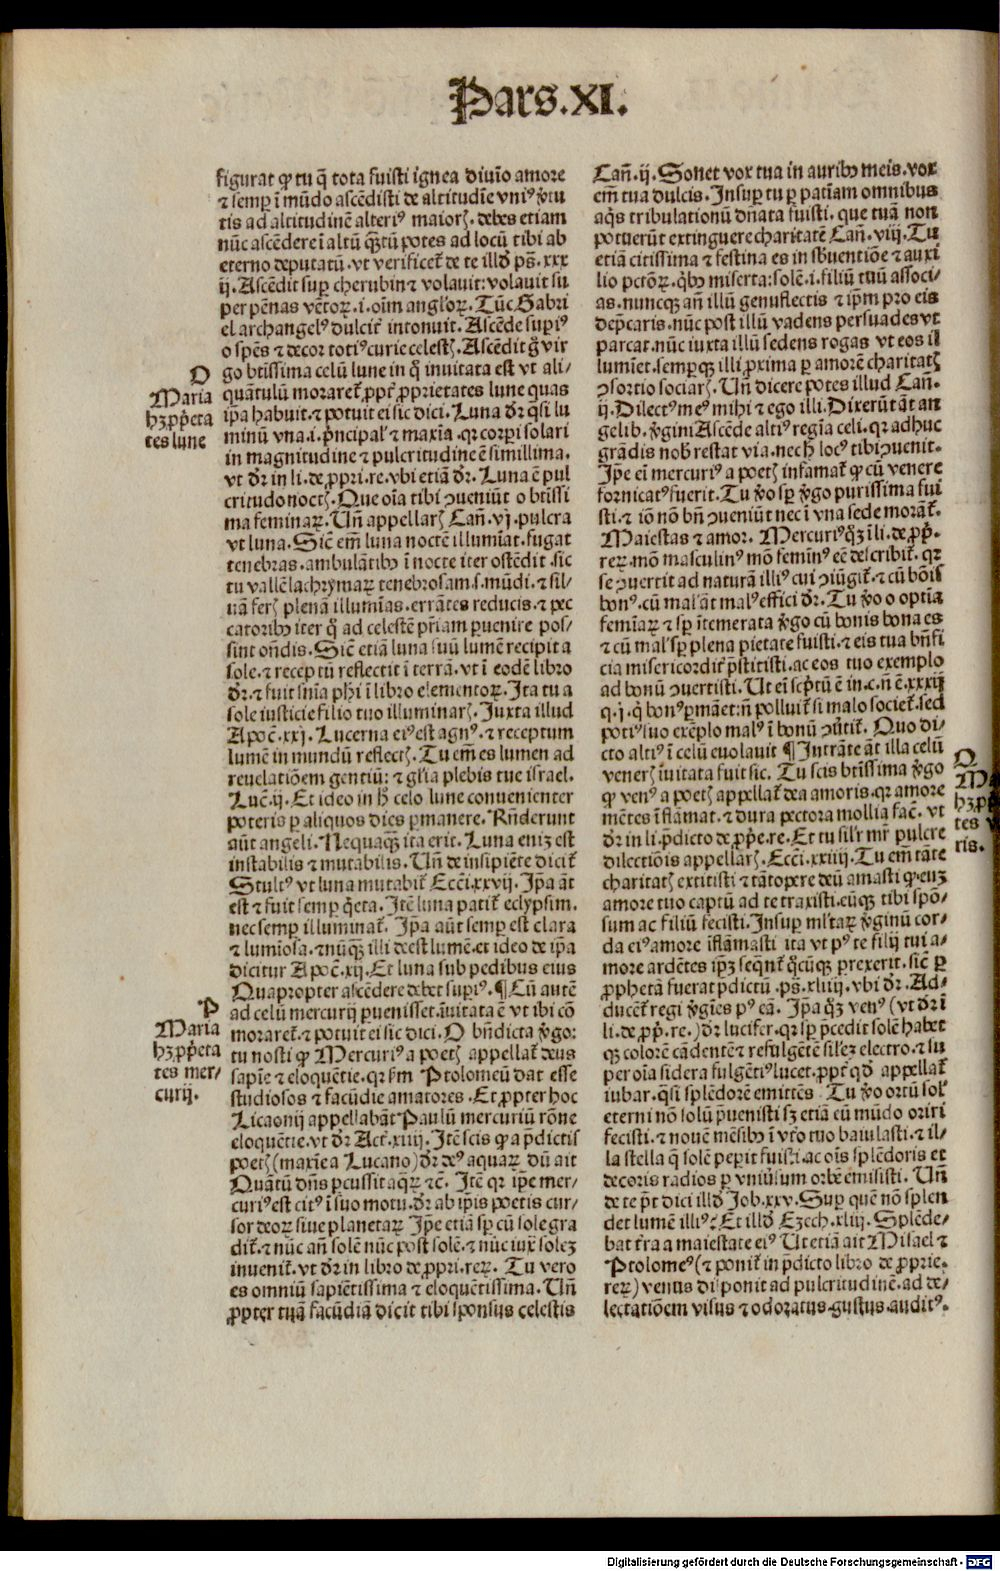 Pars.XI.
figurat ꝙ tu q̄ tota fuisti ignea diuīo amore
⁊ semp ī mūdo ascēdisti de altitudīe vniꝰ v̓tu
tis ad altitudinē alteriꝰ maiorꝭ. debes etiam
nūc ascēdere ī altū qꝫtū potes ad locū tibi ab
eterno deputatū. vt verificet̉ de te illď ps̄. xxx
ij. Ascēdit suꝑ cherubin ⁊ volauit: volauit su
per pēnas vētoꝝ. i. oīm angl̓oꝝ. Tūc Gabri
el archangelꝰ dulcit̓ intonuit. Ascēde supiꝰ
o spēs ⁊ decor totiꝰ curie celestꝭ. Ascēdit g̊ vir
go btīssima celū lune in q̊ inuitata est vt ali⸗
quātulū moraret̉ ꝓpt̓ ꝓprietates lune quas
ip̄a habuit. ⁊ potuit ei sic dici. Luna dr̄ qͣsi lu
minū vna. i. pͥncipal̓ ⁊ maxīa. qꝛ corpi solari
in magnitudine ⁊ pulcritudine ē simillima.
vt dr̄ in li. de ꝓpri. re. vbi etiā dr̄. Luna ē pul
critudo noctꝭ. Que oīa tibi ꝯueniūt o btīssi
ma feminaꝝ. Vn̄ appellarꝭ Cañ. vj. pulcra
vt luna. Sic̄ em̄ luna noctē illumīat. fugat
tenebras. ambulātibꝰ ī nocte iter ostēdit. sic
tu vallē lachrymaꝝ tenebrosam. s. mūdi. ⁊ sil⸗
uā ferꝭ plenā illumīas. errātes reducis. ⁊ pec
catoribꝰ iter q̊ ad celestē pr̄iam ꝑuenire pos⸗
sint on̄dis. Sic̄ etiā luna suū lumē recipit a
sole. ⁊ receptū reflectit ī terrā. vt ī eodē libro
dr̄. ⁊ fuit sn̄ia phi̓ ī libro elementoꝝ. Ita tu a
sole iusticie filio tuo illuminarꝭ. Juxta illud
Apoc̄. xxj. Lucerna eiꝰ est agnꝰ. ⁊ receptum
lumē in mundū reflectꝭ. Tu em̄ es lumen ad
reuelatiōem gentiū: ⁊ gl̓ia plebis tue israel.
Luc̄. ij. Et ideo in h̓ celo lune conuenienter
poteris ꝑ aliquos dies ꝑmanere. Rn̄derunt
aūt angeli. Nequaqͣꝫ ita erit. Luna enīꝫ est
instabilis ⁊ mutabilis. Vn̄ de insipiēte dicit̉
Stultꝰ vt luna mutabit̉ Ecc̄i. xxvij. Ip̄a āt
est ⁊ fuit semp q̓eta. Itē luna patit̉ eclypsim.
nec semp illuminat̉. Ip̄a aūt semp est clara
⁊ lumiōsa. ⁊ nūqͣꝫ illi deest lumē. et ideo de ip̄a
dicitur Apoc̄. xij. Et luna sub pedibus eius
Quapropter ascēdere debet supiꝰ. ¶ Cū autē
ad celum mercurij ꝑuenisset. īuitata ē vt ibi cō
moraret̉. ⁊ potuit ei sic dici. O bn̄dicta v̓go:
tu nosti ꝙ Mercuriꝰ a poetꝭ appellat̉ deus
sapīe ⁊ eloquētie. qꝛ s̄m Ptolomeū dat esse
studiosos ⁊ facūdie amatores. Et ꝓpter hoc
Licaonij appellabāt Paulū mercuriū rōne
eloquētie. vt dr̄ Act̄. xiiij. Itē scis ꝙ a p̄dictis
poetꝭ (maxīe a Lucano) dr̄ deꝰ aquaꝝ dū ait
Quātū dn̄s ꝑcussit aqͣꝝ ⁊c̄. Itē qꝛ ip̄e mer⸗
curiꝰ est citꝰ ī suo motu. dr̄ ab ip̄is poetis cur⸗
sor deoꝝ siue planetaꝝ Ip̄e etiā sꝑ cū sole gra
dit̉. ⁊ nūc an̄ solē nūc post solē. ⁊ nūc iux̄ solez
inuenit̉. vt dr̄ in libro de ꝓpri. reꝝ. Tu vero
es omniū sapiētissima ⁊ eloquētissima. Vn̄
ꝓpter tuā facūdiā dicit tibi sponsus celestis
O
Maria
hꝫ ꝓp̓eta
tes lune
P
Maria
hꝫ ꝓp̓eta
tes mer⸗
curij.
Cañ. ij. Sonet vox tua in auribꝰ meis. vox
em̄ tua dulcis. Insuꝑ tu ꝑ patīam omnibus
aq̓s tribulationū dn̄ata fuisti. que tuā non
potuerūt extinguere charitatē Cañ. viij. Tu
etiā citissima ⁊ festina es in sb̓uentiōe ⁊ auxi
lio pctōꝝ. qͥbꝰ miserta: solē. i. filiū tuū associ⸗
as. nuncqͣꝫ an̄ illū genuflectis ⁊ ip̄m pro eis
dep̄caris. nūc post illū vadens persuades vt
parcat. nūc iuxta illū sedens rogas vt eos il
lumīet. semꝑqꝫ illi ꝓxima ꝑ amorē charitatꝭ
ꝯsortio sociarꝭ. Vn̄ dicere potes illud Cañ.
ij. Dilectꝰ meꝰ mihi ⁊ ego illi. Dixerūt āt an
geli b. v̓gini Ascēde altiꝰ regīa celi. qꝛ adhuc
grādis nob̓ restat via. nec h̓ locꝰ tibi ꝯuenit.
Ip̄e em̄ mercuriꝰ a poetꝭ infamat̉ ꝙ cū venere
fornicatꝰ fuerit. Tu v̓o sꝑ v̓go purissima fui
sti. ⁊ iō nō bn̄ ꝯueniūt nec ī vna sede morāt̉.
Maiestas ⁊ amor. Mercuriꝰ qͦꝫ ī li. de ꝓp̓.
reꝝ. mō masculinꝰ mō femīnꝰ eē describit̉. qꝛ
se ꝯuertit ad naturā illiꝰ cui ꝯiūgit̉. ⁊ cū bōis
bonꝰ. cū mal̓ āt malꝰ effici dr̄. Tu v̓o o optīa
femīaꝝ ⁊ sꝑ ītemerata v̓go cū bonis bona es
⁊ cū mal̓ sꝑ plena pietate fuisti. ⁊ eis tua bn̄fi
cia misericordit̓ p̄stitisti. ac eos tuo exemplo
ad bonū ꝯuertisti. Ut em̄ scp̄tū ē in. c. n̄ ē. xxxij
q. j. q̊ bonꝰ ꝑmāet: n̄ polluit̉ si malo societ̉. sed
potiꝰ suo exēplo malꝰ ī bonū ꝯūtit̉. Quo di⸗
cto altiꝰ ī celū euolauit ¶ Intrāte āt illa celū
venerꝭ īuitata fuit sic. Tu scis btīssima v̓go
ꝙ venꝰ a poetꝭ appellat̉ dea amoris. qꝛ amore
mētes īflāmat. ⁊ dura pectora mollia fac̄. vt
dr̄ in li. p̄dicto de ꝓp̓e. re. Et tu sil̓r mr̄ pulcre
dilectiōis appellarꝭ. Ecc̄i. xxiiij. Tu em̄ tāte
charitatꝭ extitisti ⁊ tātopere deū amasti ꝙ euꝫ
amore tuo captū ad te traxisti. eūqꝫ tibi spō⸗
sum ac filiū fecisti. Insuꝑ ml̓taꝝ v̓ginū cor⸗
da eiꝰ amore īflāmasti ita vt pꝰ te filij tui a⸗
more ardētes ip̄ꝫ seqͣnt̉ qͦcūqꝫ ꝑrexerit. sic̄ ꝑ
ꝓphetā fuerat p̄dictū. ps̄. xliiij. vbi dr̄. Ad⸗
ducēt̉ regi v̓gīes pꝰ eā. Ip̄a qͦꝫ venꝰ (vt dr̄ ī
li. de ꝓp̓. re.) dr̄ lucifer. qꝛ sꝑ p̄cedit solē habet
qꝫ colorē cādentē ⁊ refulgētē sil̓ez electro. ⁊ su
per oīa sidera fulgētiꝰ lucet. ꝓpt̓ qď appellat̉
iubar. qͣsi splēdorē emittēs. Tu v̓o ortū sol̓
eterni nō solū p̄uenisti sꝫ etiā cū mūdo oriri
fecisti. ⁊ nouē mēsibꝰ ī vt̓o tuo baiulasti. ⁊ il⸗
la stella q̄ solē peꝑit fuisti. ac oīs splēdoris et
decoris radios ꝑ vniūsum orbē emisisti. Vn̄
de te p̄t dici illď Job. xxv. Suꝑ quē nō splen
det lumē illiꝰ: Et illď Ezech. xliij. Splēde⸗
bat tr̄a a maiestate eiꝰ Ut etiā ait Misael ⁊
Ptolomeꝰ (⁊ ponit̉ in p̄dicto libro de ꝓprie.
reꝝ) venus disponit ad pulcritudinē. ad de⸗
lectatiōem visus ⁊ odoratus. gustus. auditꝰ.
O
Ma
hꝫ ꝓp
tes v
ris.
Digitalisierung gefördert durch die Deutsche Forschungsgemeinschaft - DFG